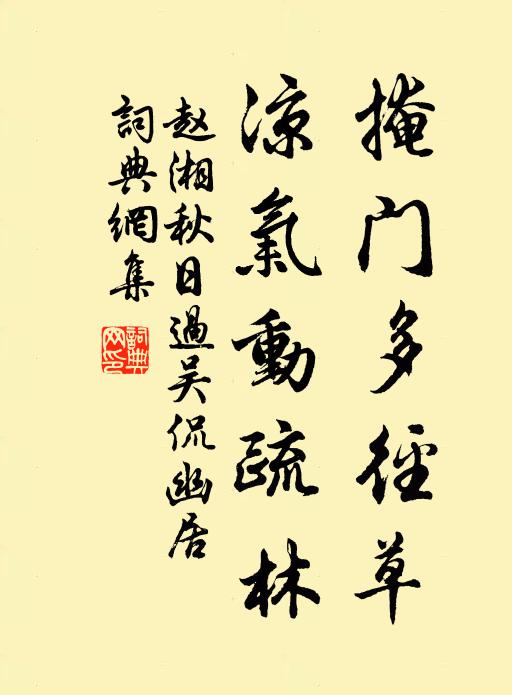 掩門多徑草
涼氣動疏林
赵湘秋日過吴侃幽居
詞典網集
詞典
网印